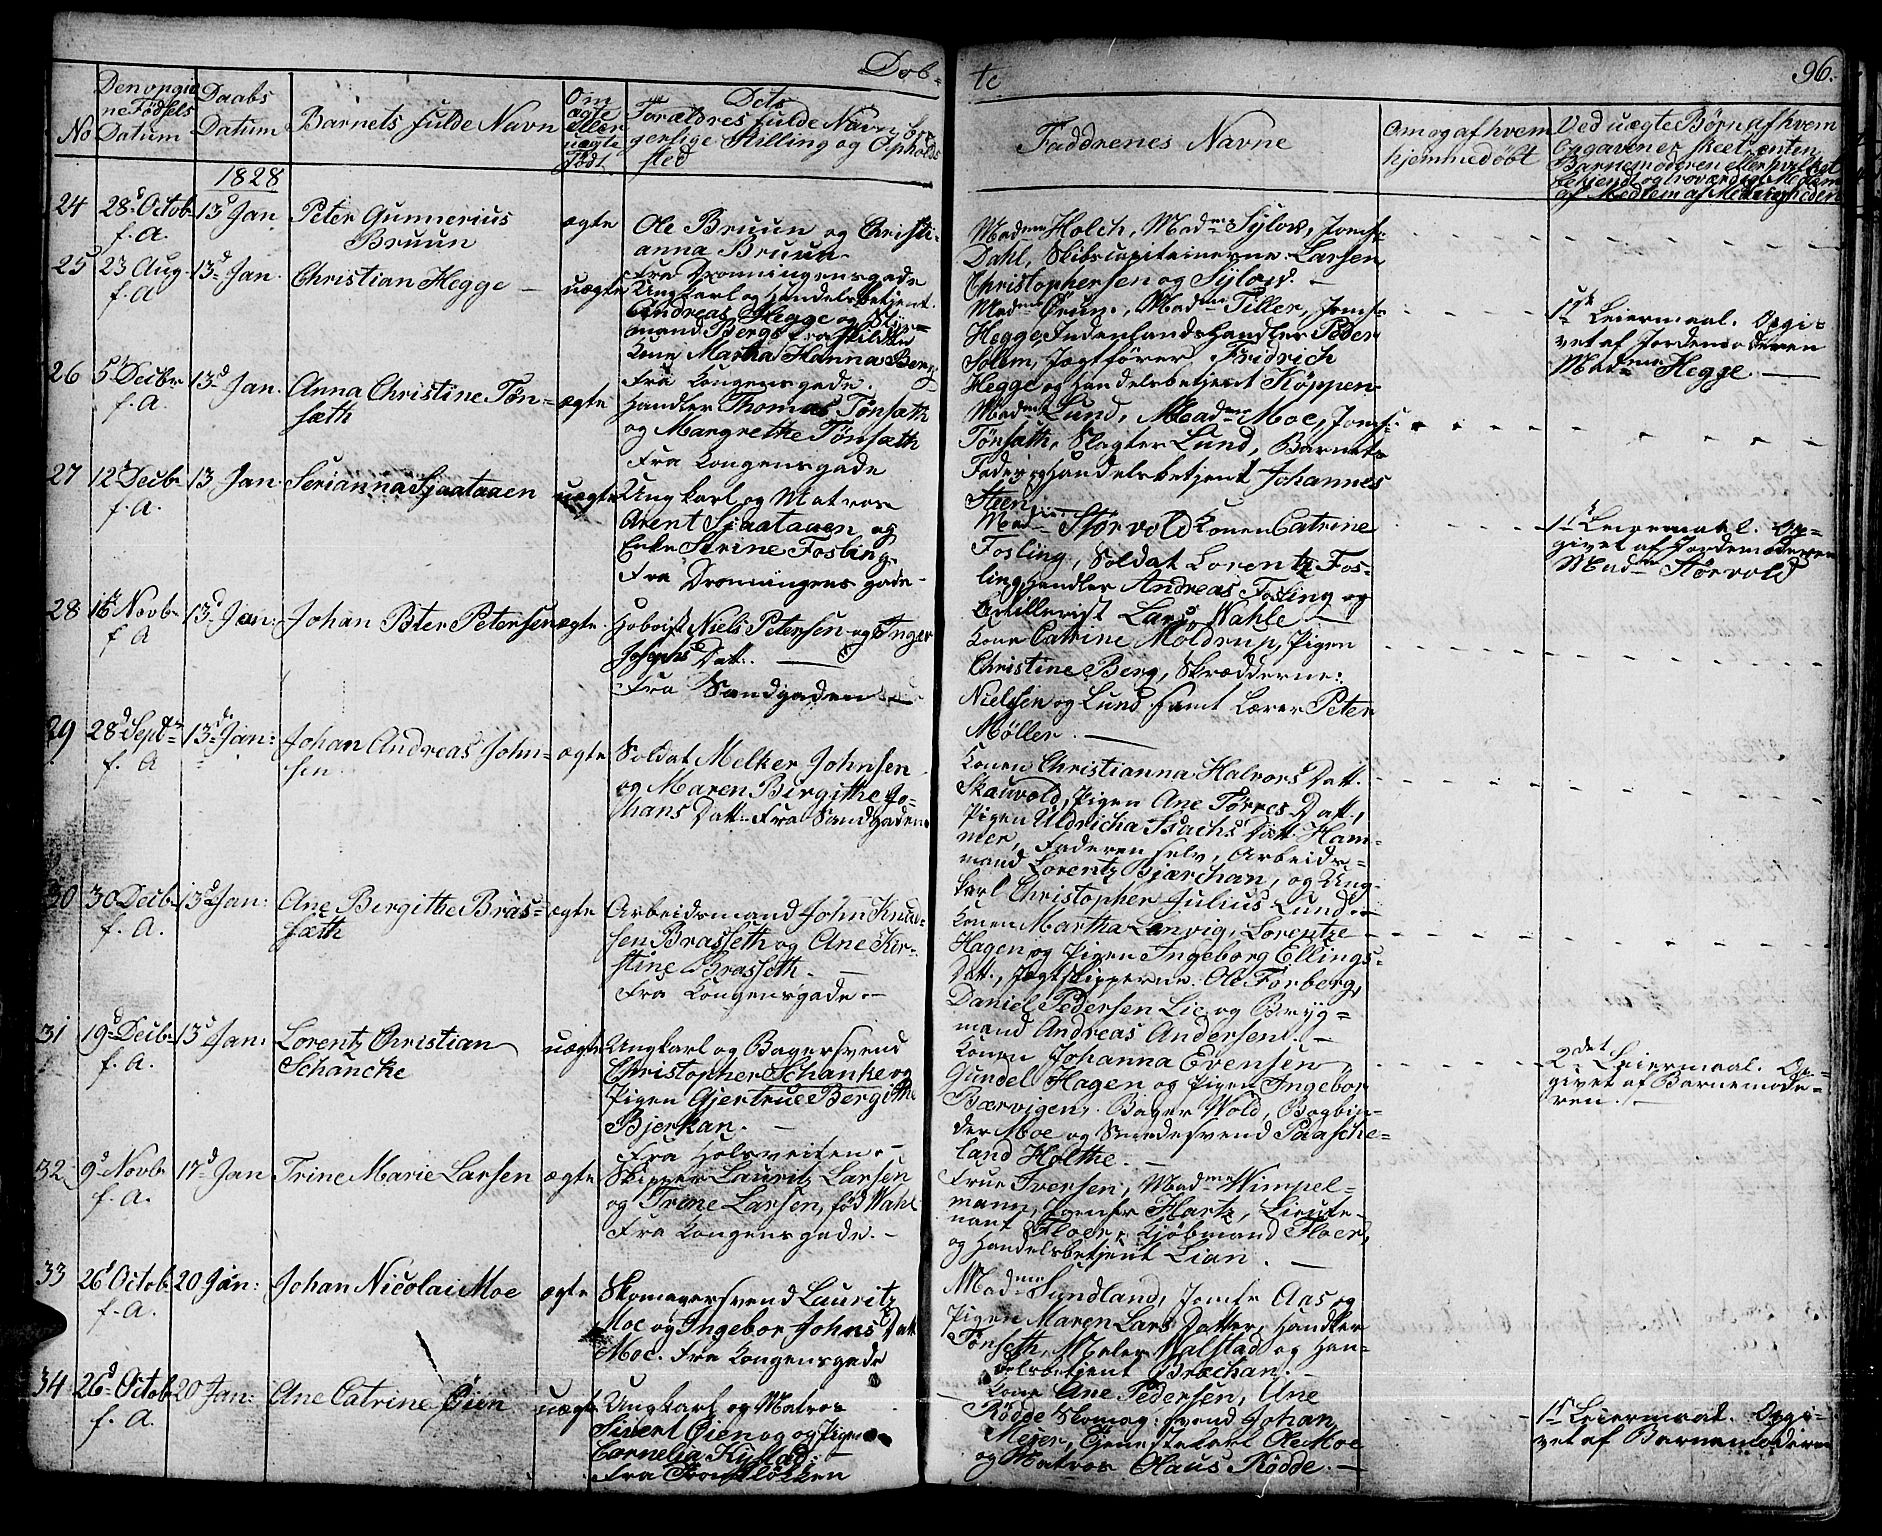 Døb-
te
96.
No
Den opgiv
ne Fødsels
Datum
Daabs
Datum
Barnets fulde Navn
Om
ægte
eller
uægte
Født
Dets
Forældres fulde Navn, bor
gerlige Stilling og Opholds
sted
Faddrenes Navne
Om og af hvem
hjemmedøbt
Ved uægte Børn af hvem
Opgaven er skeet, enten
Barnemoderen eller hvilket
bekiendt og troværdigt Medlem
af Menigheden
1828
24
28d Octob
f. A.
13d Jan
Peter Gunnerius
Bruun
ægte
Ole Bruun og Christi-
anna Bruun
Fra Dronningensgade
Madme Holch, Madme Sylow, Jomf:
Dahl, Skibscapitainerne Larsen
Christophersen og Sylow. -
25
23 Aug
f. A
13d Jan.
Christian Hegge -
uægte
Ungkarl og Handelsbetjent
Andreas Hegge og Styr-
mand Bergs fraskilde
Kone Martha Hanna Berg
Fra Kongensgade.
Madme Bruun, Madme Tiller, Jomf:
Hegge, Indenlandshandler Peder
Solem, Jagtfører Fridrich
Hegge og Handelsbetjent Köppen
1ste Leiermaal. Opgi-
vet af Jordemoderen
Madme Hegge. -
26
5t Decbr
f. A.
13d Jan.
Anna Christine Tøn-
sæth
ægte
Handler Thomas Tønsæth
og Margrethe Tønsæth
Fra Kongensgade
Madme Lund, Madme Moe, Jomf:
Tønsæth, Slagter Lund, Barnets
Fader og Handelsbetjent Johannes
Steen
27
12t Decbr
f. A.
13 Jan
Serianna Sjaataaen
uægte
Ungkarl og Matros
Arent Sjaataaen og
Enke Serine Fosling
Fra Dronningens gade -
Madme Storvold Konen Catrine
Fosling, Soldat Lorentz Fos-
ling, Handler Andreas Fosling og
Artillerist Lars Wahle -
1ste Leiermaal. Op-
givet af Jordemoderen
Madme Störvold
28
16 Novbr
f. A
13d Jan:
Johan Peter Petersen
ægte
Hoboist Niels Petersen og Inger
Josephs Datt: -
Fra Sandgaden
Kone Catrine Moldrup, Pigen
Christine Berg, Skrædderne:
Nielsen og Lund samt Lærer Peter
Møller. -
29
28d Septr
f. A
13de Jan:
Johan Andreas John-
sen
ægte
Soldat Melker Johnsen
og Maren Birgithe Jo-
hans Datt: Fra Sandgaden
Konen Christianna Halvors Datt.
Skauvold, Pigen Ane Törres Datt,
Pigen Uldricha Isachs Datt. Ham-
mer, Faderen selv, Arbeids-
mand Lorentz Bjærchan, og Ung-
karl Christopher Julius Lund. -
30
30 Decbr
f. A.
13d Jan:
Ane Birgithe Bras-
sæth
ægte
Arbeidsmand John Knud-
sen Brasseth og Ane Kir-
stine Brasseth. -
Fra Kongensgade. -
Konen Martha Lenvig, Lorentze
Hagen og Pigen Ingeborg Ellings-
Datt, Jagtskipperne: Ole Forberg,
Daniel Pedersen Lie og Bryg-
mand Andreas Andersen. -
31
19d Decbr
f. A.
13d Jan:
Lorentz Christian
Schancke
uægte
Ungkarl og Bagersvend
Christopher Schanke og
Pigen Gjertrue Bergithe
Bjerkan. -
Fra Holsveiten. -
Konen Johanna Evensen
Gundel Hagen og Pigen Ingebor
Bærvigen, Bager Wold, Bogbin-
der Moe og Smedesvend Paasche-
land Holthe. -
2det Leiermaal. Op-
givet af Barnemode-
ren. -
32
9d Novbr
f. A.
17d Jan
Trine Marie Larsen
ægte
Skipper Lauritz Larsen
og Trine Larsen, fød Wahl
Fra Kongensgade. -
Frue Iversen, Madme Wimpel-
mann, Jomfr Hartz, Lieute-
nant Floer, Kjøbmand Floer,
og Handelsbetjent Lian. -
33
26d Octob
f. A.
20 Jan:
Johan Nicolai Moe
ægte
Skomagersvend Lauritz
Moe og Ingebor Johns Datt
Moe. Fra Kongensgade
Madme Sundland, Jomfr Aas og
Pigen Maren Lars Datter, Handler
Tønseth, Maler Walstad og Han-
delsbetjent Bræchan. -
34
26d Octob
f. A.
20 Jan:
Ane Catrine Øien
uægte
Ungkarl og Matros
Sivert Øien og Pigen
Cornelia Kystad:
Fra
Kone Ane Pedersen, Ane
Rödde Skomag: svend Johan
Mejer, Tjenestekarl Ole Moe
og Matros Claus Rödde. -
1ste Leiermaal. Opgi-
vet af Barnemoderen